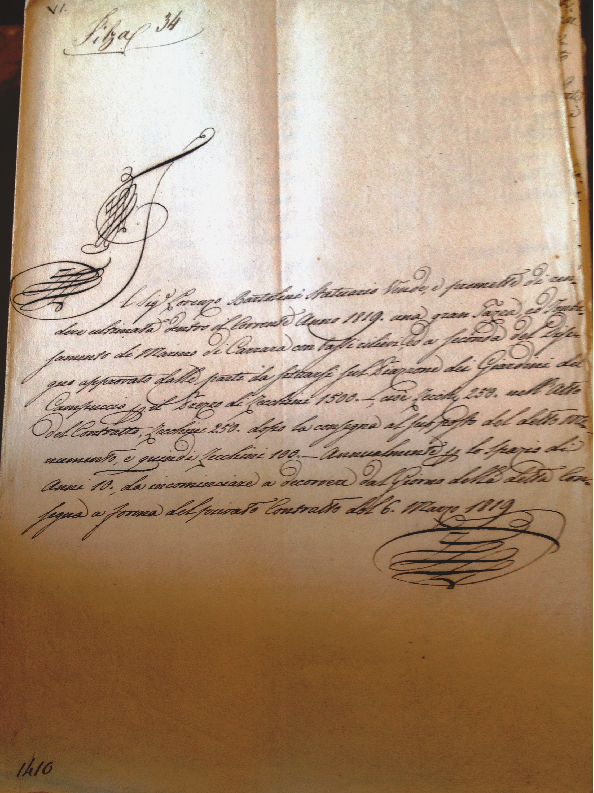 VI.
Filza 34
Il Sig.r Lorenzo Bartolini Statuario Vende, e promette di ren-
dere ultimata dentro il corrente Anno 1819. una gran Tazza, ed Imba-
samento di Marmo di Carrara con bassi rilievi ed a seconda del Dise-
gno approvato dalle parti da situarsi sul Piazzone dei Giardini del
Campuccio p. il Prezzo di Zecchini 1500.— cioè Zecch. 250. nell'Atto
del Contratto, Zecchini 250. dopo la consegna al suo posto del detto Mo-
numento, e quindi Zecchini 100.— Annualmente p. lo spazio di
Anni 10. da incominciare a decorrere dal Giorno della detta Con-
segna a forma del privato Contratto del 6. Marzo 1819
1410